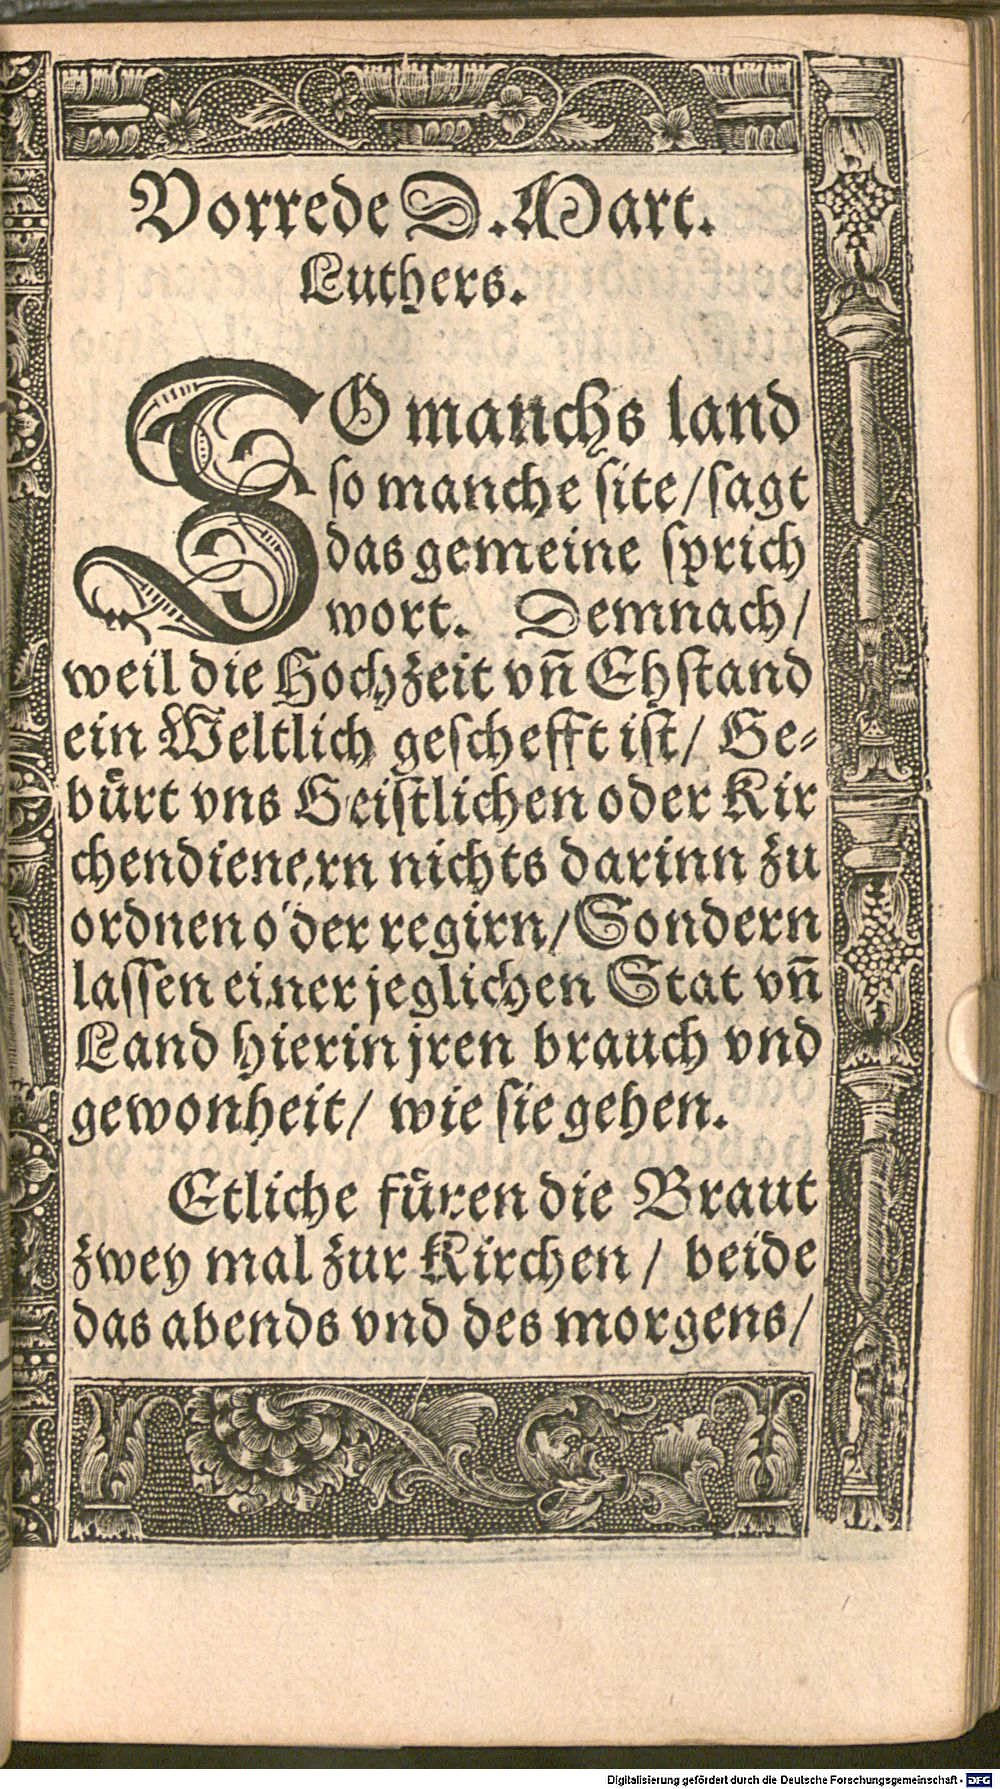 Vorrede D. Mart.
Luthers.
SO manchs land
so manche site/sagt
das gemeine sprich
wort. Demnach/
weil die Hochzeit vn̄ Ehstand
ein Weltlich geschefft ist/ Ge-
bürt vns Geistlichen oder Kir
chendienern nichts darinn zu
ordnen oder regirn/Sondern
lassen einer jeglichen Stat vn̄
Land hierin jren brauch vnd
gewonheit/ wie sie gehen.
Etliche füren die Braut
zwey mal zur Kirchen/ beide
das abends vnd des morgens/
Digitalisierung gefördert durch die Deutsche Forschungsgemeinschaft - DFG